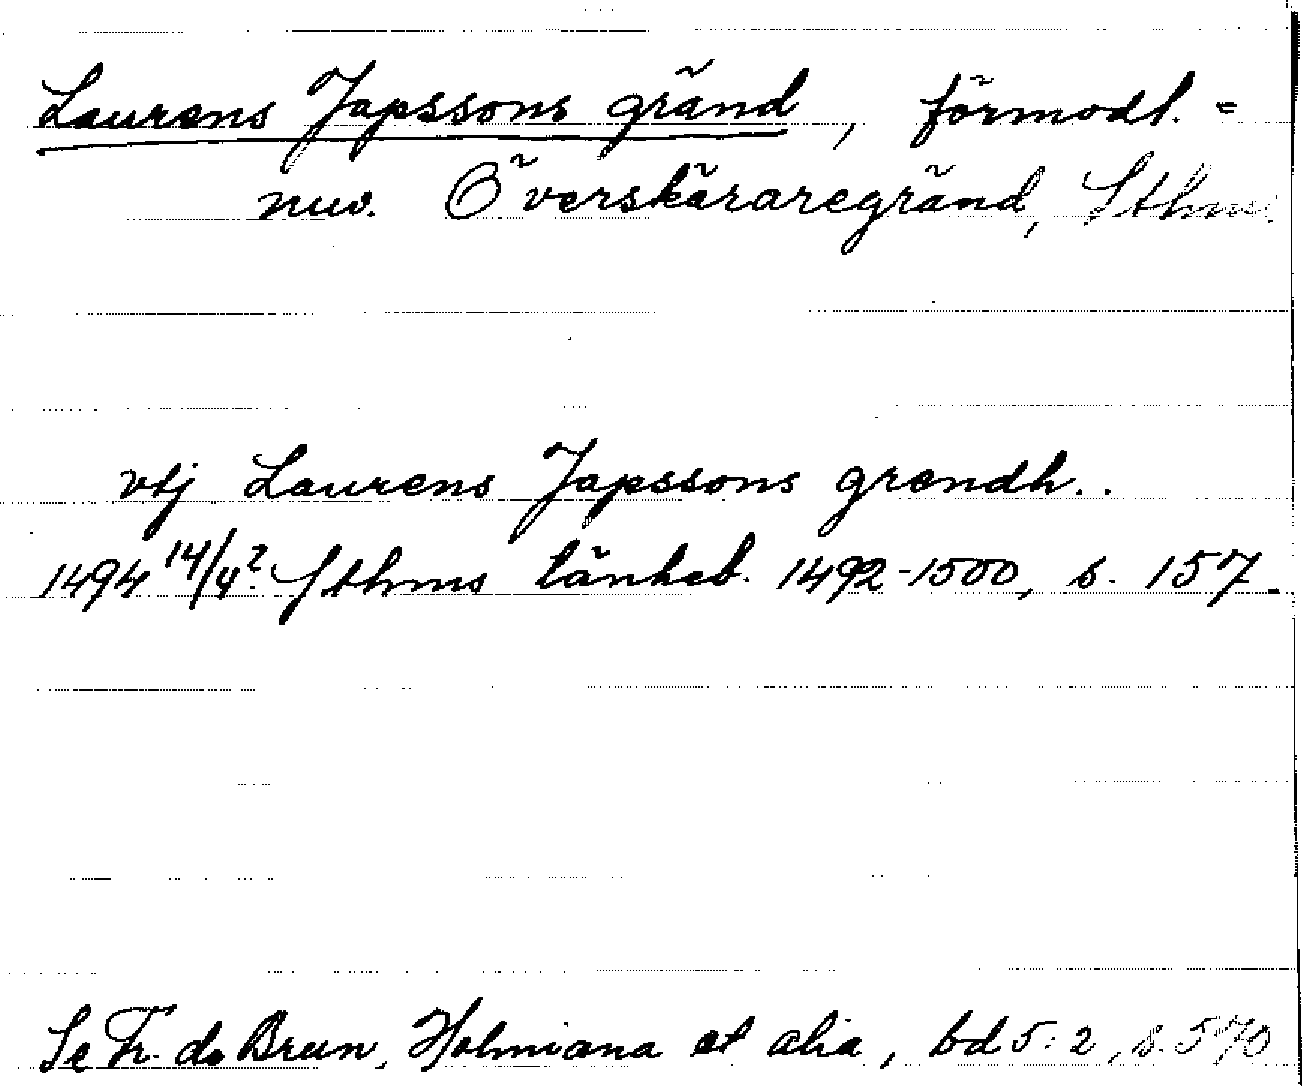 Laurens Japssons gränd, förmodl. =
nuv. Överskäraregränd, Sthm.
vtj Laurens Japssons grendh..
1494 14/4? Sthms tänkeb. 1492-1500, s. 157.
Se Fr. de Brun, Holmiana et alia, bd 5:2, s. 570